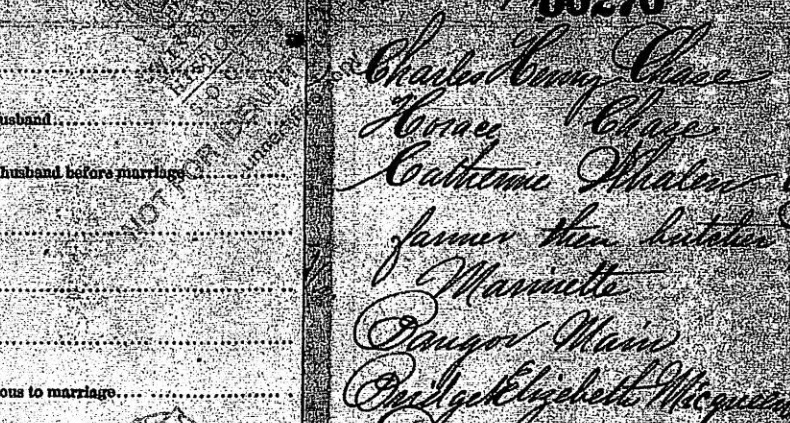 66276
Charles Henry Chase
usband
Horace Chase
husband before marriage
Catherine Whalen
farmer then butcher
Marinette
Bangor Main
ous to marriage
Bridget Elizabeth
NOT FOR IDENTI